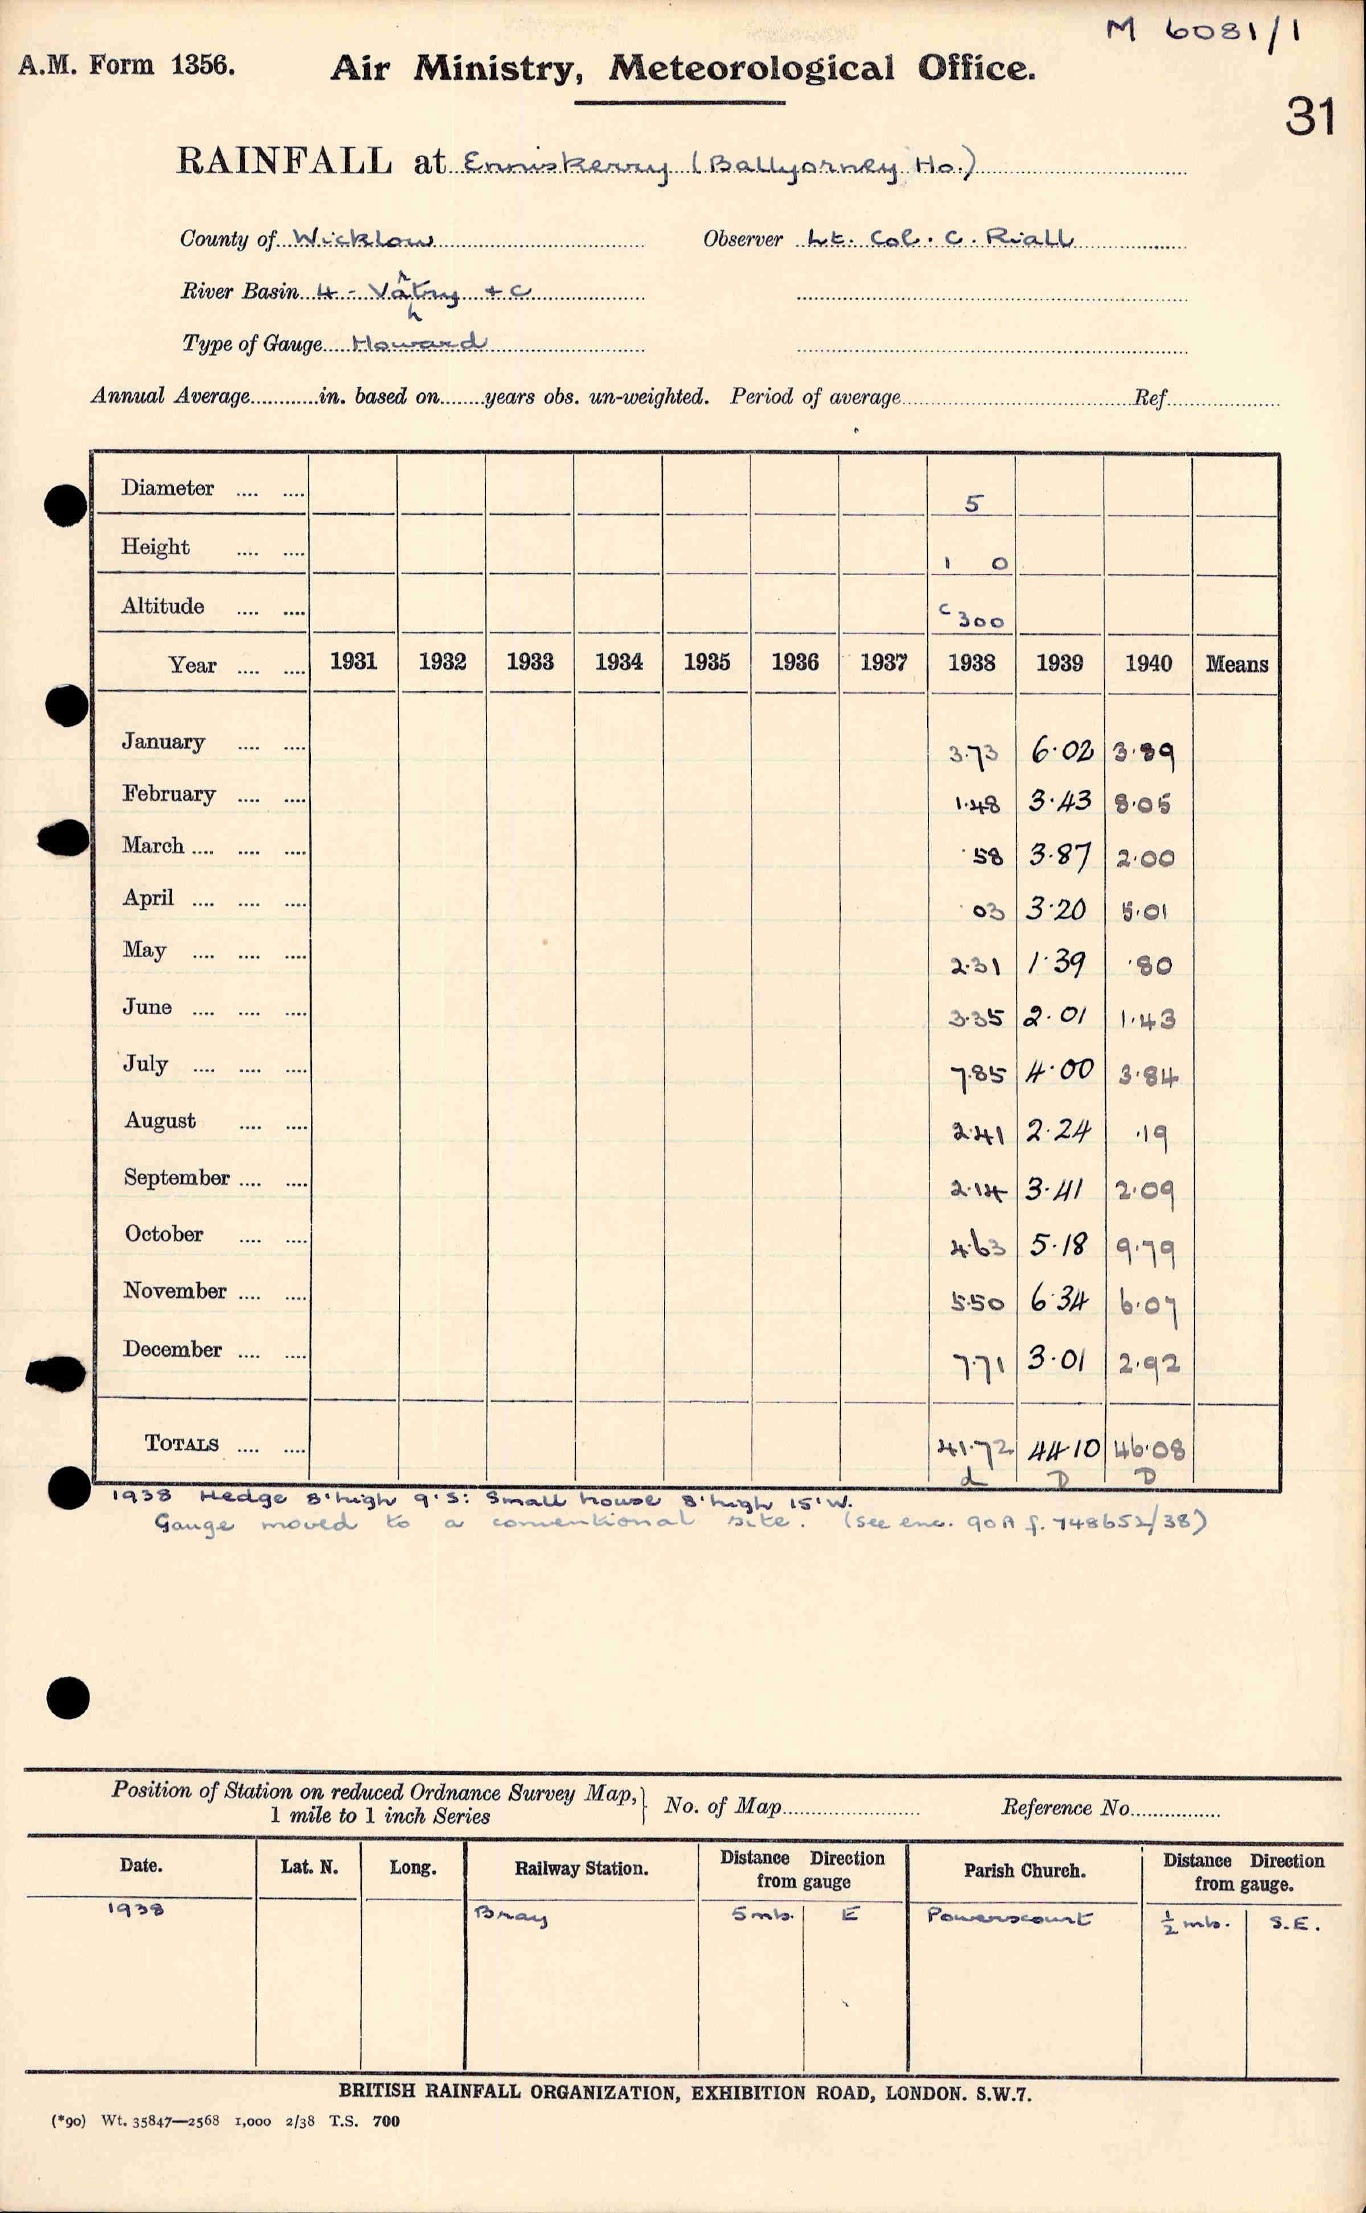 M 6081/1
A.M. Form 1356. Air Ministry, Meteorological Office.
31
RAINFALL at Enniskerry (Ballyorney Ho.)
County of Wicklow Observer Lt. Col. C. Riall
River Basin 4 - Vartry + C
Type of Gauge Howard
Annual Average............in. based on.......years obs. un-weighted. Period of average.............................Ref.............
Diameter .... .... 5
Height .... .... 1 0
Altitude .... .... c 300
Year .... .... 1931 1932 1933 1934 1935 1936 1937 1938 1939 1940 Means
January .... .... 3.73 6.02 3.89
February .... .... 1.48 3.43 8.05
March .... .... .... .58 3.87 2.00
April .... .... .... .03 3.20 5.01
May .... .... .... 2.31 1.39 .80
June .... .... .... 3.35 2.01 1.43
July .... .... .... 7.85 4.00 3.84
August .... .... 2.41 2.24 .19
September .... .... 2.14 3.41 2.09
October .... .... 4.63 5.18 9.79
November .... .... 5.50 6.34 6.07
December .... .... 7.71 3.01 2.92
TOTALS .... .... 41.72 44.10 46.08
d D D
1938 Hedge 8' high 9' S: Small house 8' high 15' W.
Gauge moved to a conventional site. (See enc. 90A f. 748652/38)
Position of Station on reduced Ordnance Survey Map,
1 mile to 1 inch Series
No. of Map....................... Reference No...............
Date. Lat. N. Long. Railway Station. Distance Direction from gauge Parish Church. Distance Direction from gauge.
1938 Bray 5 mls. E Powerscourt ½ mls. S.E.
BRITISH RAINFALL ORGANIZATION, EXHIBITION ROAD, LONDON. S.W.7.
(*90) Wt. 35847—2568 1,000 2/38 T.S. 700